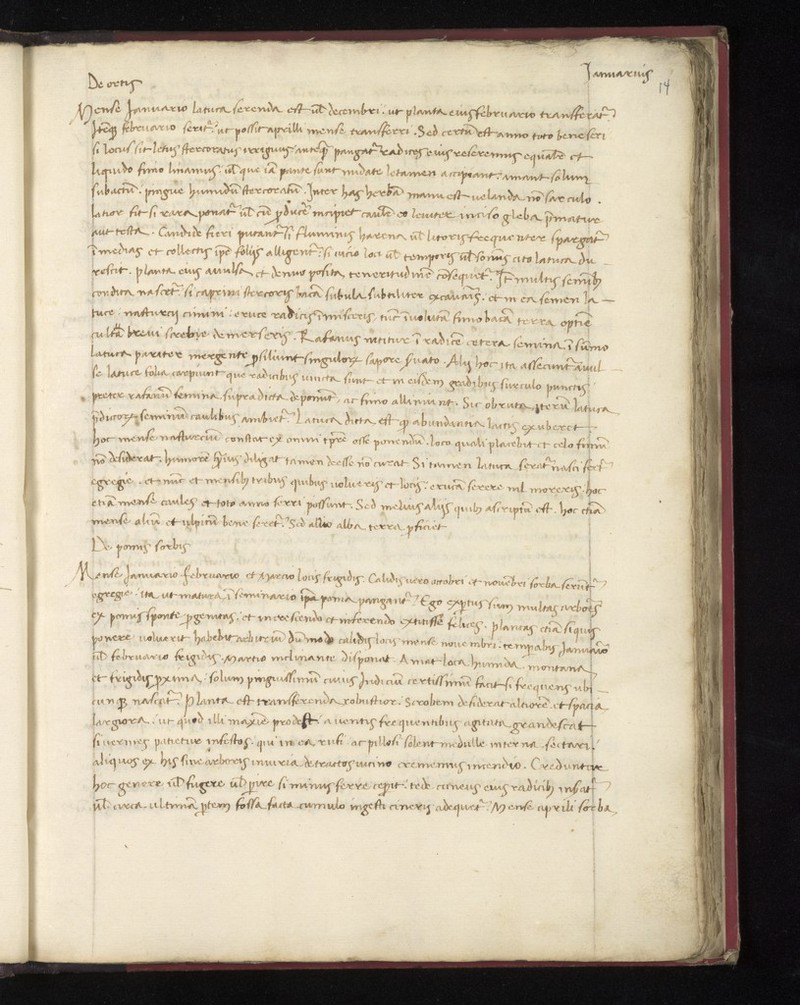 Januarius 14
De ortis
Mense Januario latuca serenda est ul̄ decembri · ut planta eius februario transferat᷑
Itẽqȝ februario serit᷑ · ut possit aprilli mense transferri · Sed certũ est anno toto bene seri
si locus sit letus stercoratus irriguus · anteq̃ pangat᷑ radices eius resecemus equaliẽ et
liquido fimo liniamus · ul̄ que iã pante sunt nudate letamen accipiant · amant solum
subactũ · pingue humidũ stercoratũ · Inter has herbã manu est uelanda nõ sarculo ·
latior fit si rara ponat᷑ ul̄ cũ ꝓducẽ incipiet caulẽ eo leuiter inciso gleba p̃mature
aut testa · Candide fieri putant᷑ si fluminis harena ul̄ litoris frequenter spargat᷑
ĩ medias et collectis ip̃e folijs alligent᷑ · si uicio loci ul̄ temporis ul̄ seminis cito latuca du
rescit · planta eius auulsa et denuo posita teneritudinẽ cõsequet᷑ · Itẽ multis semĩbȝ
condita nascet᷑ · si caprini stercoris bacã subula subtiliter excauaũis · et in ea semen la
tuce · nasturcij cimini · eruce radicis ĩmiseris tũc ĩuolutã fimo bacã terra optie
cultã breui scrobe demerseris · Rafanus nititur ĩ radicẽ cetera semina ĩ sũmo
latuca pariter mergente ꝓsiliunt singulorꝝ sapore seruato · Alij hoc ita assecunt᷑ auul
se latuce folia carpiunt que radicibus uincta sunt et in eisdem gradibus surculo punctis
preter rafanũ semina supra dicta deponũt · ac fimo alliniunt · Sic obruta iterũ latuca
p̃dictorꝝ seminũ caulibus ambiet᷑ · Latuca dicta est ꝙ abundantia lactis exuberet
hoc mense nasturciũ constat ex omni tp̃re esse ponendũ · loco quali placebit et celo fimũ
nõ desiderat · humorẽ q̃uis diligat tamen deesse nõ curat Si tamen latuca serat᷑ nasci fert᷑
egregie · et nũc et mensibȝ tribus quibus uolueris et locis · erucã serere nil moreris · hoc
etiã mense caules et toto anno serri possunt · Sed melius alijs quibȝ ascriptũ est · hoc etiã
mense aliũ et ulpicũ bene seret᷑ · Sed aliũ alba terra ꝓficiet
De pomis sorbis
Mense Januario februario et Marcio locis frigidis · Calidis uero octobri et nouẽbri sorba serũt᷑
egregie · ita ut matura ĩ seminario ip̃a poma pangant᷑ · Ego exp̃tus sum multas arbores
ex pomis sponte ꝓgenitas · et in crescendo et in ferendo extitisse felices · plantas etiã siquis
ponere uoluerit habebit arbitriũ dũ modo calidis locis mense nouembri · temp̃atis Januario
ul̄ februario frigidis · Marcio inclinante disponat · Amat loca humida montana
et frigidis ꝓxima · solum pinguissimũ cuius Indiciũ certissimũ facit si frequens ubi
cunqȝ nascit᷑ · Planta est transferenda robustior · Scrobem desiderat altiorẽ et spacia
largiora · ut quod illi maxie prodest · a uentis frequentibus agitata grandescat
si uermes patietur infestos · qui in ea rufi ac pillosi solent medulle interna sectari ·
aliquos ex his sine arboris iniuria detractos uicino crememus incendio · Creduntur
hoc genere ul̄ fugere ul̄ p̃ire si minus ferre cep̃it · tede cuneus eius radicibȝ inserat᷑
ul̄ circa ultimã p̃tem fossa facta cumulo ingesti cineris adequet᷑ · Mense aprili sorba